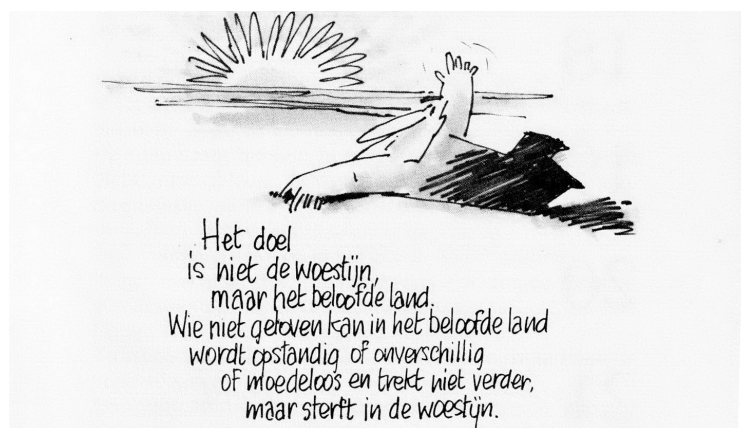 Het doel
is niet de woestijn,
maar het beloofde land.
Wie niet geloven kan in het beloofde land
wordt opstandig of onverschillig
of moedeloos en trekt niet verder,
maar sterft in de woestijn.